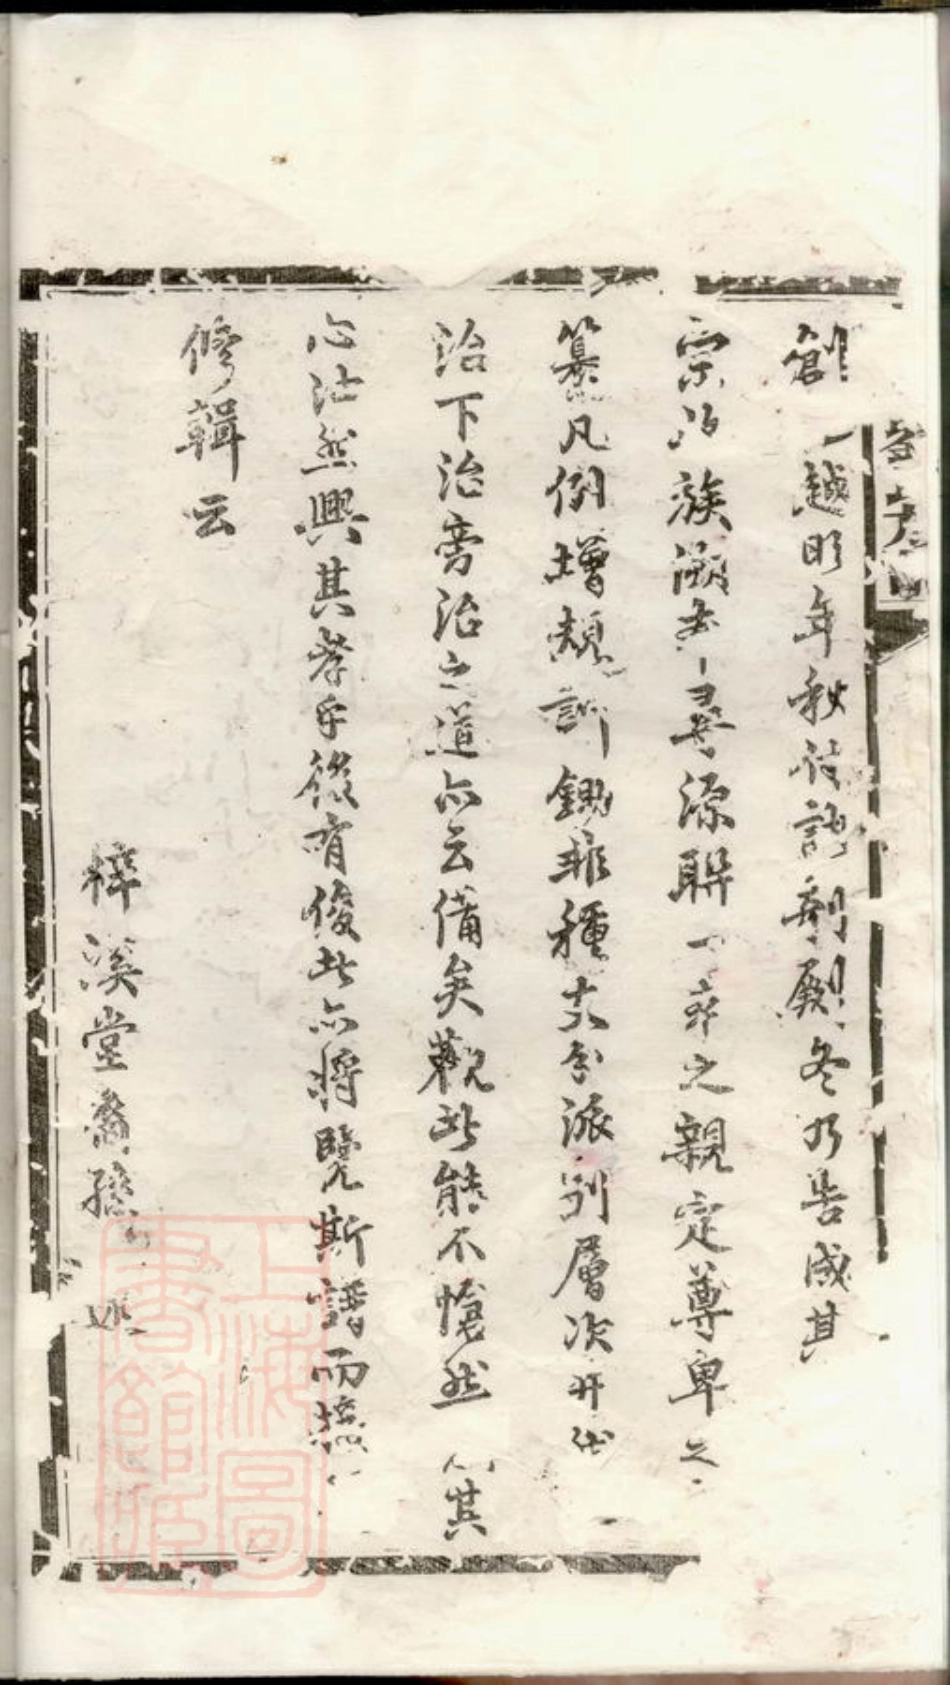 創越明年秋付訖剞劂冬乃告成其
宗功族溯尋源聯之親定尊卑之
纂凡例增類訓鋤非種支分派別層次世
治下治旁治之道亦云備矣觀此能不愴然其
心沾然興其孝乎後有俊此亦將覽斯譜而
修輯云
梓溪堂裔孫 述
上海圖書館藏